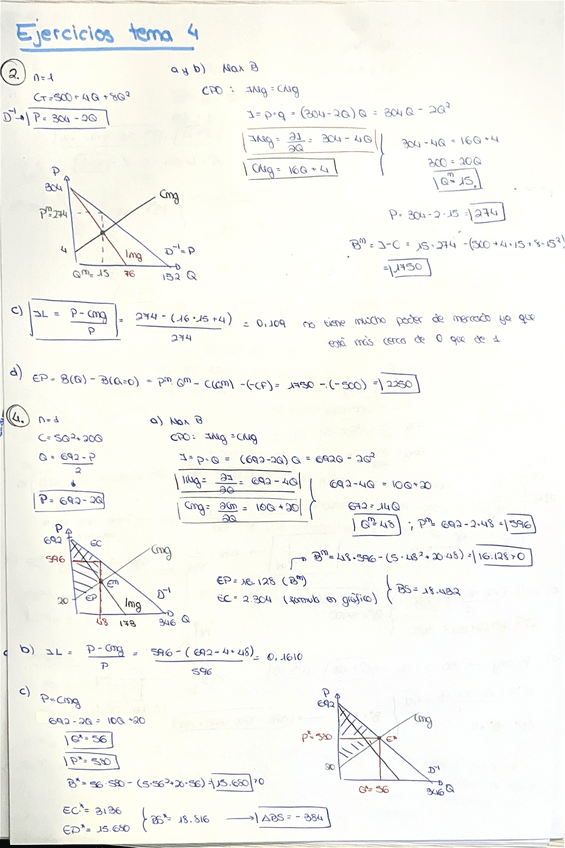 Ejercicios tema 4
2. n=1
a y b) Max B
CT=500+4Q+8Q²
CPO: IMg=CMg
D⁻¹→ P=304-2Q
I=P·Q=(304-2Q)Q=304Q-2Q²
IMg=∂I/∂Q=304-4Q
CMg=16Q+4
304-4Q=16Q+4
300=20Q
Qᵐ=15
P=304-2·15=274
Bᵐ=I-C=15·274-(500+4·15+8·15²)
=1750
P
304
Pᵐ=274
4
Cmg
D⁻¹=P
Img
Qᵐ=15 76 152 Q
c) IL=(P-Cmg)/P=(274-(16·15+4))/274=0,109 no tiene mucho poder de mercado ya que
está más cerca de 0 que de 1
d) EP=B(Q)-B(Q=0)=Pᵐ·Qᵐ-C(Qᵐ)-(-CF)=1750-(-500)=2250
4. n=1
a) Max B
C=5Q²+20Q
CPO: IMg=CMg
Q=(692-P)/2
I=P·Q=(692-2Q)Q=692Q-2Q²
P=692-2Q
IMg=∂I/∂Q=692-4Q
Cmg=∂Cm/∂Q=10Q+20
692-4Q=10Q+20
672=14Q
Qᵐ=48; Pᵐ=692-2·48=596
Bᵐ=48·596-(5·48²+20·48)=16.128>0
EP=16.128 (Bᵐ)
EC=2304 (formula en gráfico)
BS=18.432
P
692
EC
596
Cmg
Eᵐ
EP
D⁻¹
20
Img
48 173 346 Q
b) IL=(P-Cmg)/P=(596-(692-4·48))/596=0,1610
c) P=Cmg
692-2Q=10Q+20
Q*=56
P*=580
B*=56·580-(5·56²+20·56)=15.680>0
EC*=3136
EP*=15.680
BS*=18.816 → ΔBS=-384
P
692
Cmg
P*=580
E*
20
D⁻¹
Q*=56 346 Q